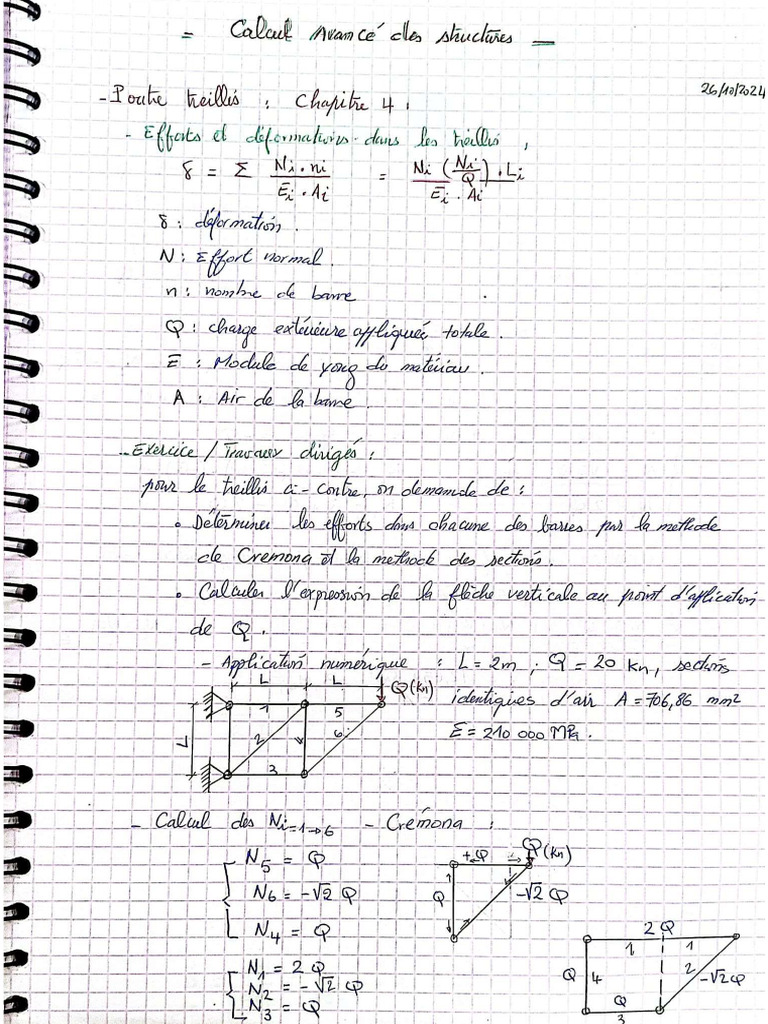 = Calcul Avancé des structures —
26/10/2024
- Poutre treillis : Chapitre 4 :
- Efforts et déformations dans les treillis,
δ = Σ Ni . ni / Ei . Ai = Ni (Ni/Q) . Li / Ei . Ai
δ : déformation.
N : Effort normal.
n : nombre de barre
Q : charge extérieure appliquée totale.
E : Module de yong du matériau.
A : Air de la barre.
- Exercice / Travaux dirigés :
pour le treillis ci-contre, on demande de :
• Déterminer les efforts dans chacune des barres par la methode
de Cremona et la methode des sections.
• Calculer l'expression de la flèche verticale au point d'application
de Q.
- Application numérique : L = 2m ; Q = 20 kn, sections
identiques d'air A = 706,86 mm²
E = 210 000 MPa.
L L Q(kn)
1 5
L 2 6
3
- Calcul des Ni=1→6 - Crémona :
N5 = Q
N6 = -√2 Q
N4 = Q
Q (kn)
+Q
Q -√2 Q
N1 = 2 Q
N2 = -√2 Q
N3 = Q
2 Q
1 1
Q 4 2 -√2Q
Q
3